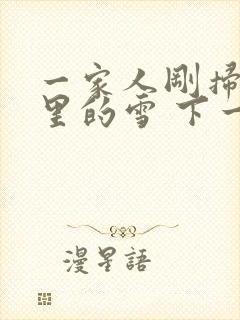 一家人剛掃
里的雪 下一
漫星語